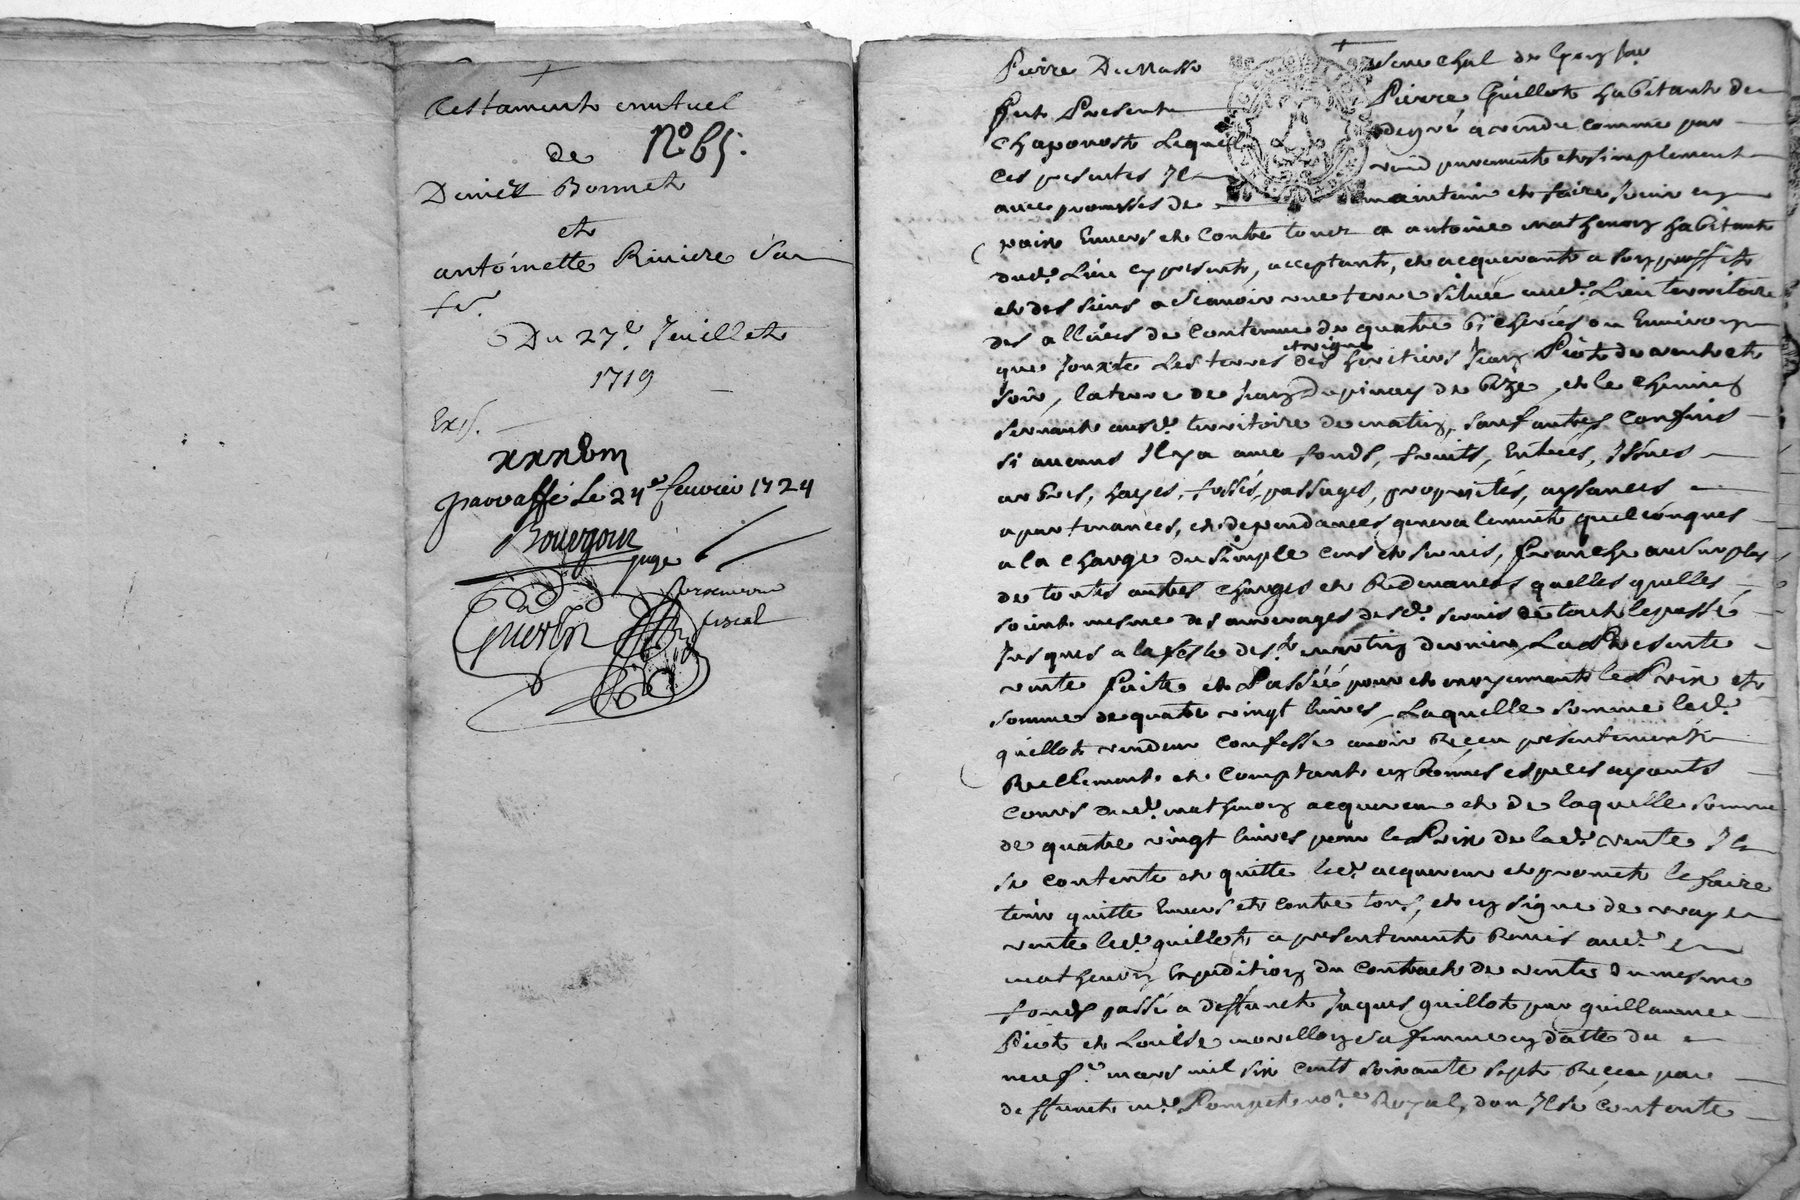 Testament mutuel
de N° 65.
Deniēt Bonnet
et
antoinette Riviere Sa
fe.
Du 27e. Jeuillet
1719
Exp.
paraffé Le 24e fevrier 1724
Bourgoin
juge
Guerin
procureur
fiscal
Pierre Dussasse Senechal de Lyon
fut Present Pierre Guillot habitant de
Chaponost Lequel de gré a vendu comme par
ces presentes Il vend purement et simplement
avec promesses de maintenir et faire jouir en
paix Envers et Contre tous a antoine mathevon habitant
dud. Lieu cy present, acceptant, et acquerant a son proffit
et des siens a Scavoir une terre située aud. Lieu territoire
des allües de Contenue de quatre bicherées ou Environ
et vigne
que Jouxte Les terres des heritiers Jean Piot de vent et
soir, la terre de Jean Dupinay de bize, et le chemin
servant aud. territoire de matin, sauf autres Confins
si aucuns Il y a avec fonds, fruits, Entrées, Issües
arbres, hayes, fossés, passages, proprietés, aysances
apartenances, et dependances generalement quelconques
a la charge du simple cens et servis, franche au surplus
de toutes autres charges et Redevances quelles quelles
soient mesme des arrerages desd. servis de tout le passé
Jusques a la feste de st. martin dernier, La Presente
vente faite et Passéé pour et moyennant le Prix et
somme de quatre vingt livres, Laquelle somme led.
guillot vendeur Confesse avoir Receu presentement
Reellement et Comptant en bonnes especes ayants
Cours dud. mathevon acquereur et de laquelle somme
de quatre vingt livres pour le Prix de lad. vente Il
se contente et quitte led. acquereur et promet le faire
tenir quitte Envers et contre tous, et en signe de vraye
vente led. guillot a presentement Remis aud.
mathevon Expedition du Contract de vente du mesme
fonds passé a deffunct Jaques guillot par guillaume
Piot et Louise morellon sa femme en datte du
neuf.e mars mil six cents soixante sept Receu par
deffunct me. Pompet no.re Royal, don Il se contente